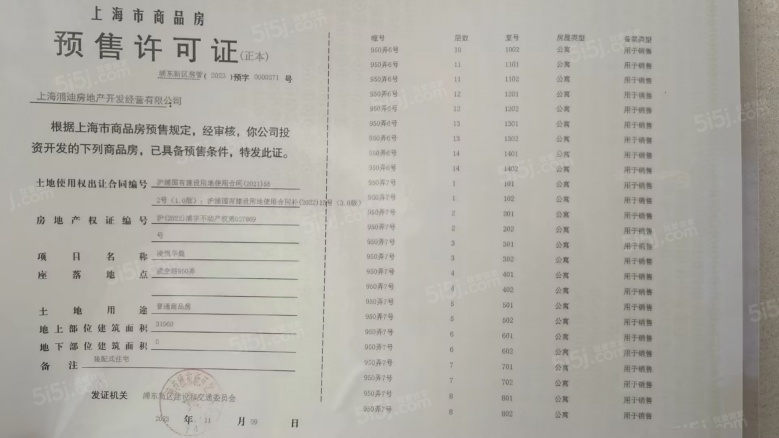 上海市商品房
预售许可证(正本)
浦东新区房管(2023)预字0000271号
房地产开发经营有限公司
根据上海市商品房预售规定，经审核，你公司投
资开发的下列商品房，已具备预售条件，特发此证。
土地使用权出让合同编号
房地产权证编号
号
项目名称
座落地点
土地用途 普通商品房
地上部位建筑面积
地下部位建筑面积 0
备注 装配式住宅
发证机关 浦东新区建设和交通委员会
2023年11月09日
幢号 层数 室号 房屋类型
950弄6号 10 1002 公寓 用于销售
950弄6号 11 1101 公寓 用于销售
950弄6号 11 1102 公寓 用于销售
950弄6号 12 1201 公寓 用于销售
950弄6号 12 1202 公寓 用于销售
950弄6号 13 1301 公寓 用于销售
950弄6号 13 1302 公寓 用于销售
950弄6号 14 1401 公寓 用于销售
950弄6号 14 1402 公寓 用于销售
950弄7号 1 101 公寓 用于销售
950弄7号 1 102 公寓 用于销售
950弄7号 2 201 公寓 用于销售
950弄7号 2 202 公寓 用于销售
950弄7号 3 301 公寓 用于销售
950弄7号 3 302 公寓 用于销售
950弄7号 4 401 公寓 用于销售
950弄7号 4 402 公寓 用于销售
950弄7号 5 501 公寓 用于销售
950弄7号 5 502 公寓 用于销售
950弄7号 6 601 公寓 用于销售
950弄7号 6 602 公寓 用于销售
950弄7号 7 701 公寓 用于销售
950弄7号 7 702 公寓 用于销售
950弄7号 8 801 公寓 用于销售
950弄7号 8 802 公寓 用于销售
5i5j.com